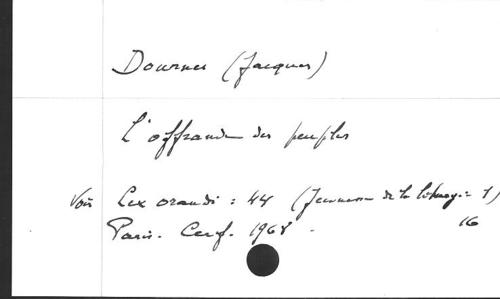 Dournes (Jacques)
L'offrande des peuples
Voir Lex orandi : 44 (Jeunesse de la liturgie 1)
Paris. Cerf. 1967. 16